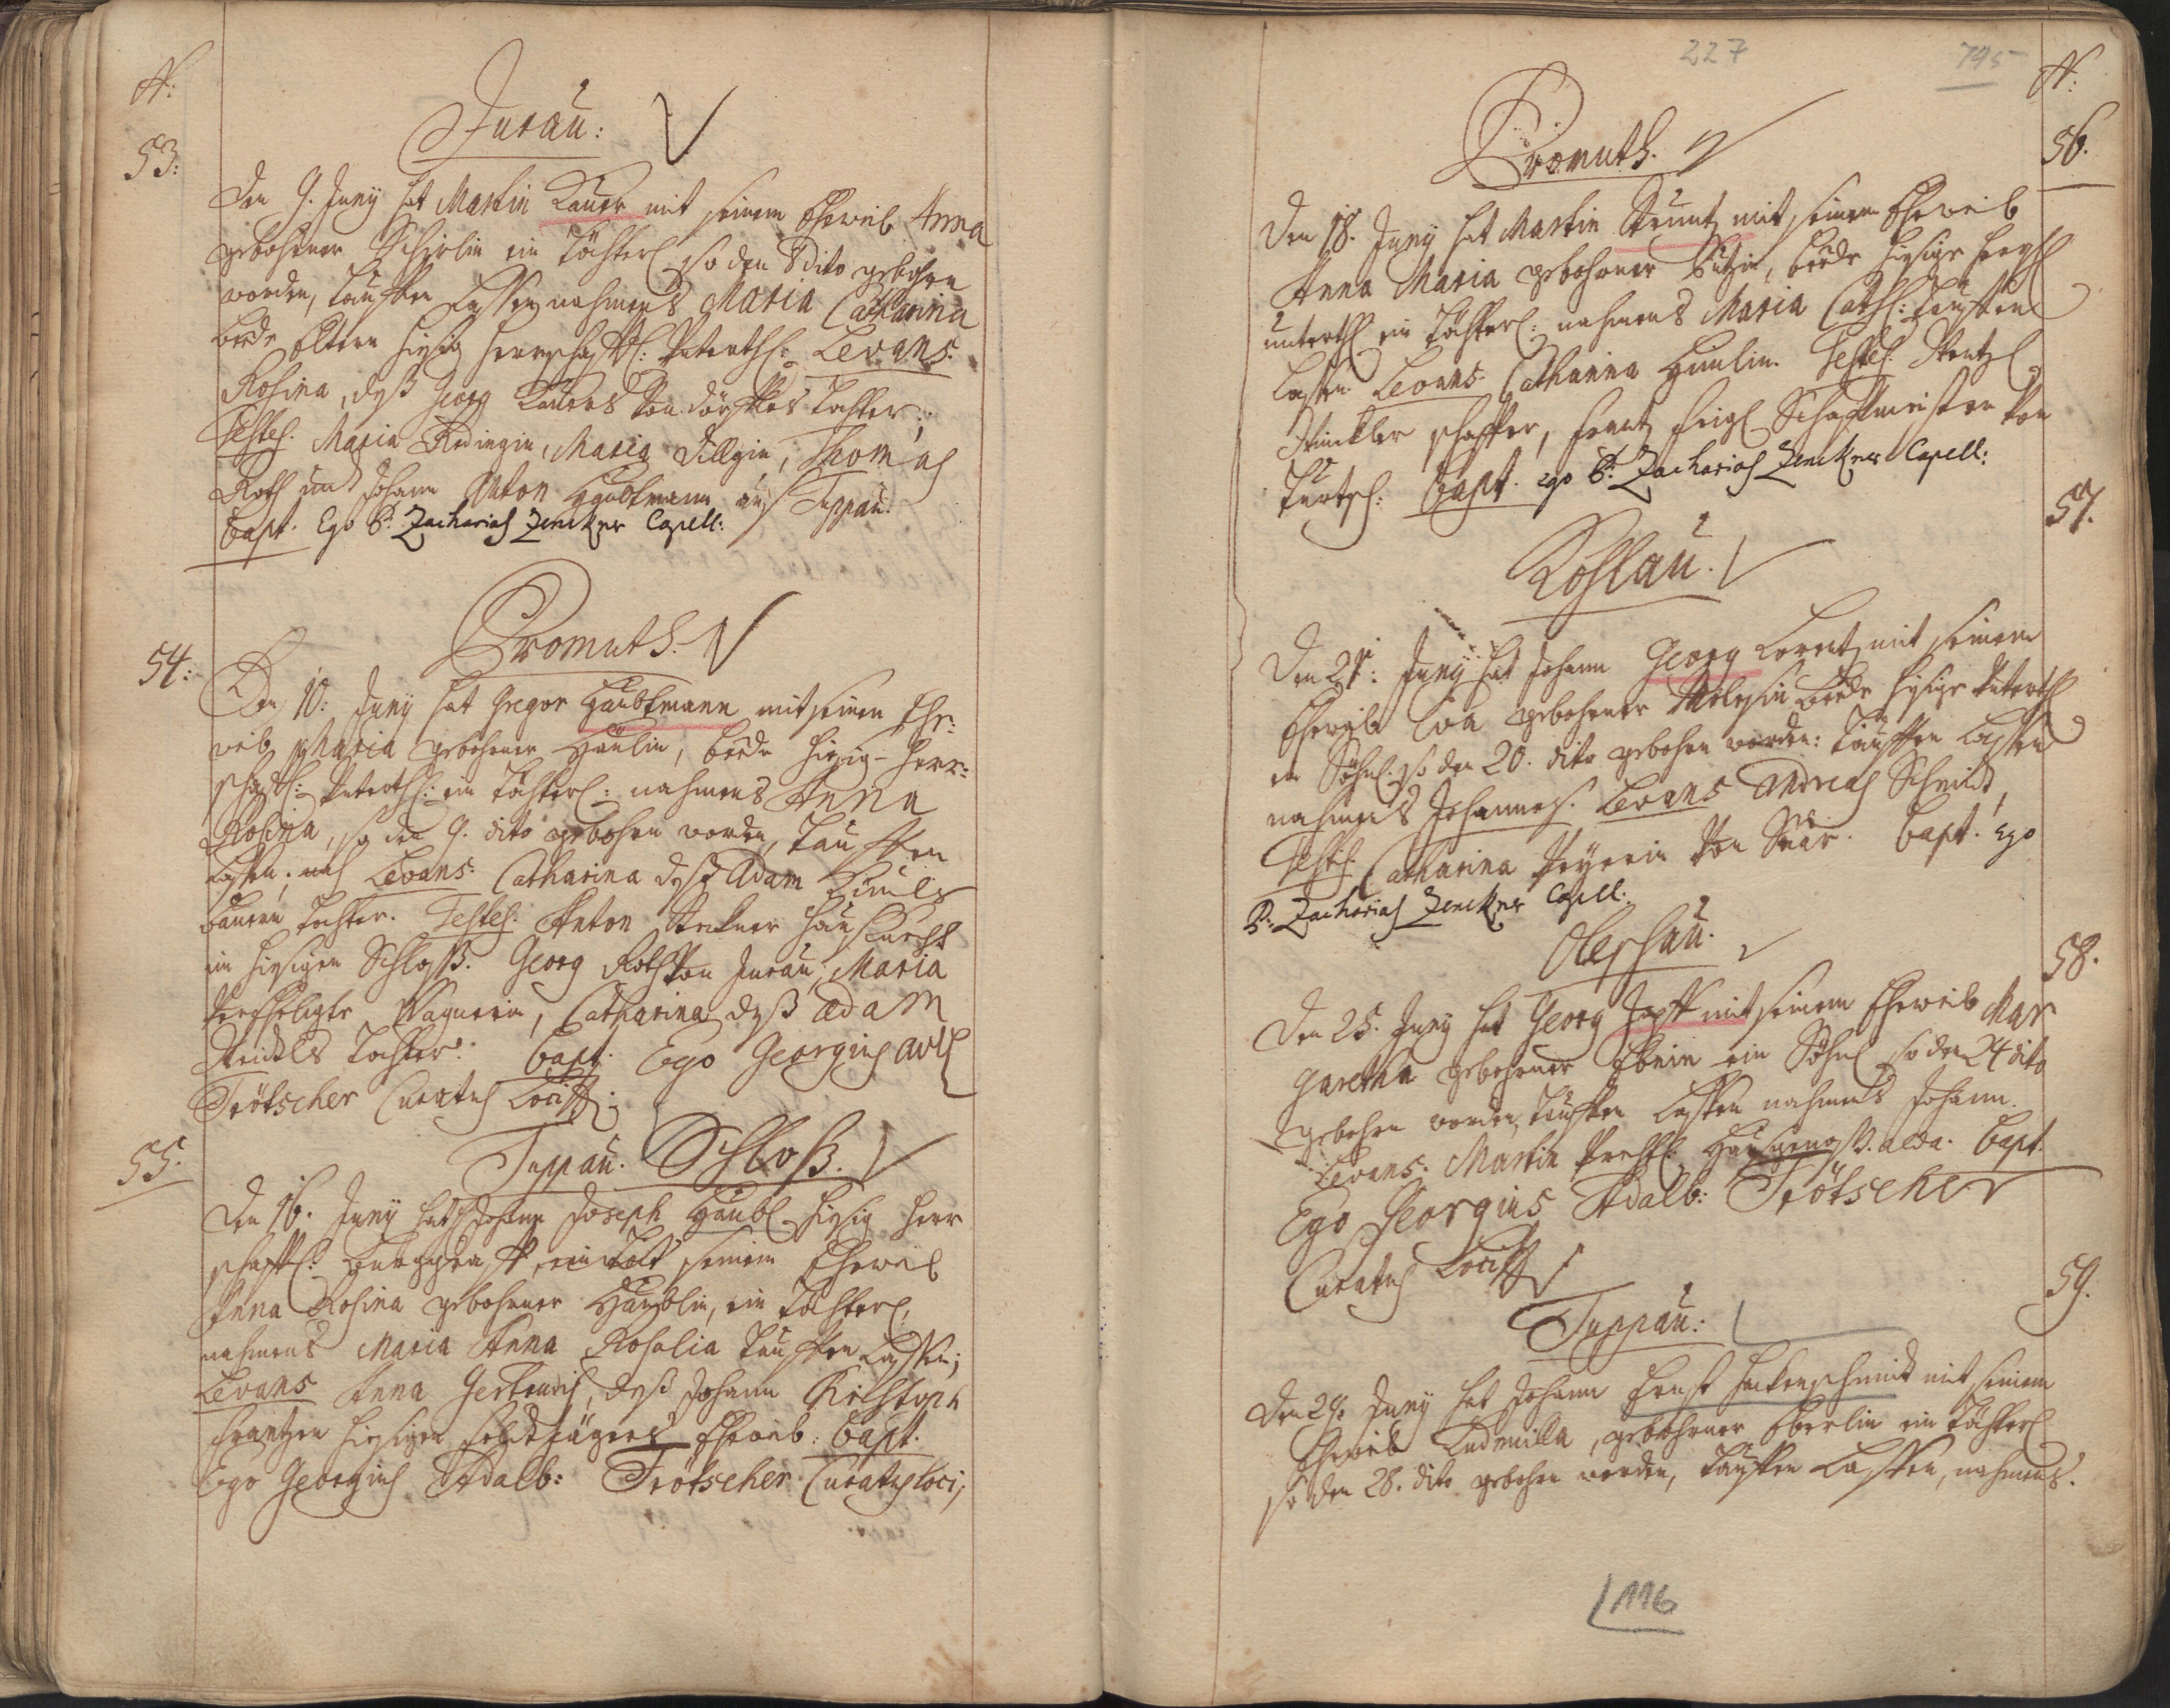 N:
Jurau:
53:
Den 9. Juny hat Martin Lauer mit seinem Eheweib Anna
gebohrner Schirlin ein Töchterl so den 8 dito gebohrn
worden, tauffen Lassen nahmens Maria Catharina
beede Eltern hiesig herrschafftl: Unterth: Levans.
Rosina, deß Georg Lauers von dörffles Tochter;
Testes. Maria Redingin, Maria Dillgin, Thomas
Roth und Johann Anton Haubtmann auß Duppau.
bapt. Ego P: Zacharias Zenckner Capell:
Promuth.
54:
Den 10: Juny hat Gregor Haubtmann mit seinem Ehe-
weib Maria gebohrner Häulin, beede hiesig-herr-
schafftl: Unterth: ein Töchterl: nahmens Anna
Rosina, so den 9. dito gebohrn worden, tauffen
Lassen; Levans: Catharina deß Adam
bauern Tochter. Testes. Anton haußknecht
im hiesigen Schloß. Georg Roth von Jurau, Maria
verehligte Wagnerin, Catharina deß Adam
Tochter. bapt. Ego Georgius
Trötscher Curatus Loci
Duppau. Schloß.
55.
Den 16. Juny hat Johann Joseph hiesig herr
schafftl: Burggraff, mit seinem Eheweib
Anna Rosina gebohrner ein Töchterl,
nahmens Maria Anna Rosalia tauffen Lassen;
Levans Anna Gertrudis, deß Johann Christoph
Frantzen hiesigen feldtjägers Eheweib. bapt.
Ego Georgius Adalb: Trötscher Curatus loci,
227
795
N:
56.
Promuth.
Den 18. Juny hat Martin Steuntz mit seinem Eheweib
Anna Maria gebohrner beede hiesige
unterth ein Töchterl: nahmens Maria Cath: tauffen
Lassen. Levans. Catharina Häulin. Testes.
schaffer, Frantz Schaffmeister von
Turtsch: bapt. ego P: Zacharias Zenckner Capell:
57.
Koslau.
Den 21: Juny hat Johann Georg Lorentz mit seinem
Eheweib Eva gebohrner beede hiesige Unterth
ein Söhnl. so den 20. dito gebohrn worden: tauffen Lassen
nahmens Johannes. Levans Andreas Schmidt,
Testes. Catharina von bapt. Ego
P: Zacharias Zenckner Capell:
Oleschau.
58.
Den 25. Juny hat Georg mit seinem Eheweib Mar
garetha gebohrner ein Söhnl so den 24 dito
gebohrn worden, tauffen Lassen nahmens Johann.
Levans. Martin haußgenoß. alda. bapt.
Ego Georgius Adalb: Trötscher
Curatus Loci
59.
Duppau:
Den 29. Juny hat Johann Ernst Hackenschmidt mit seinem
Eheweib Ludmilla, gebohrner Eberlin ein Töchterl
so den 28. dito gebohrn worden, tauffen Lassen, nahmens.
116